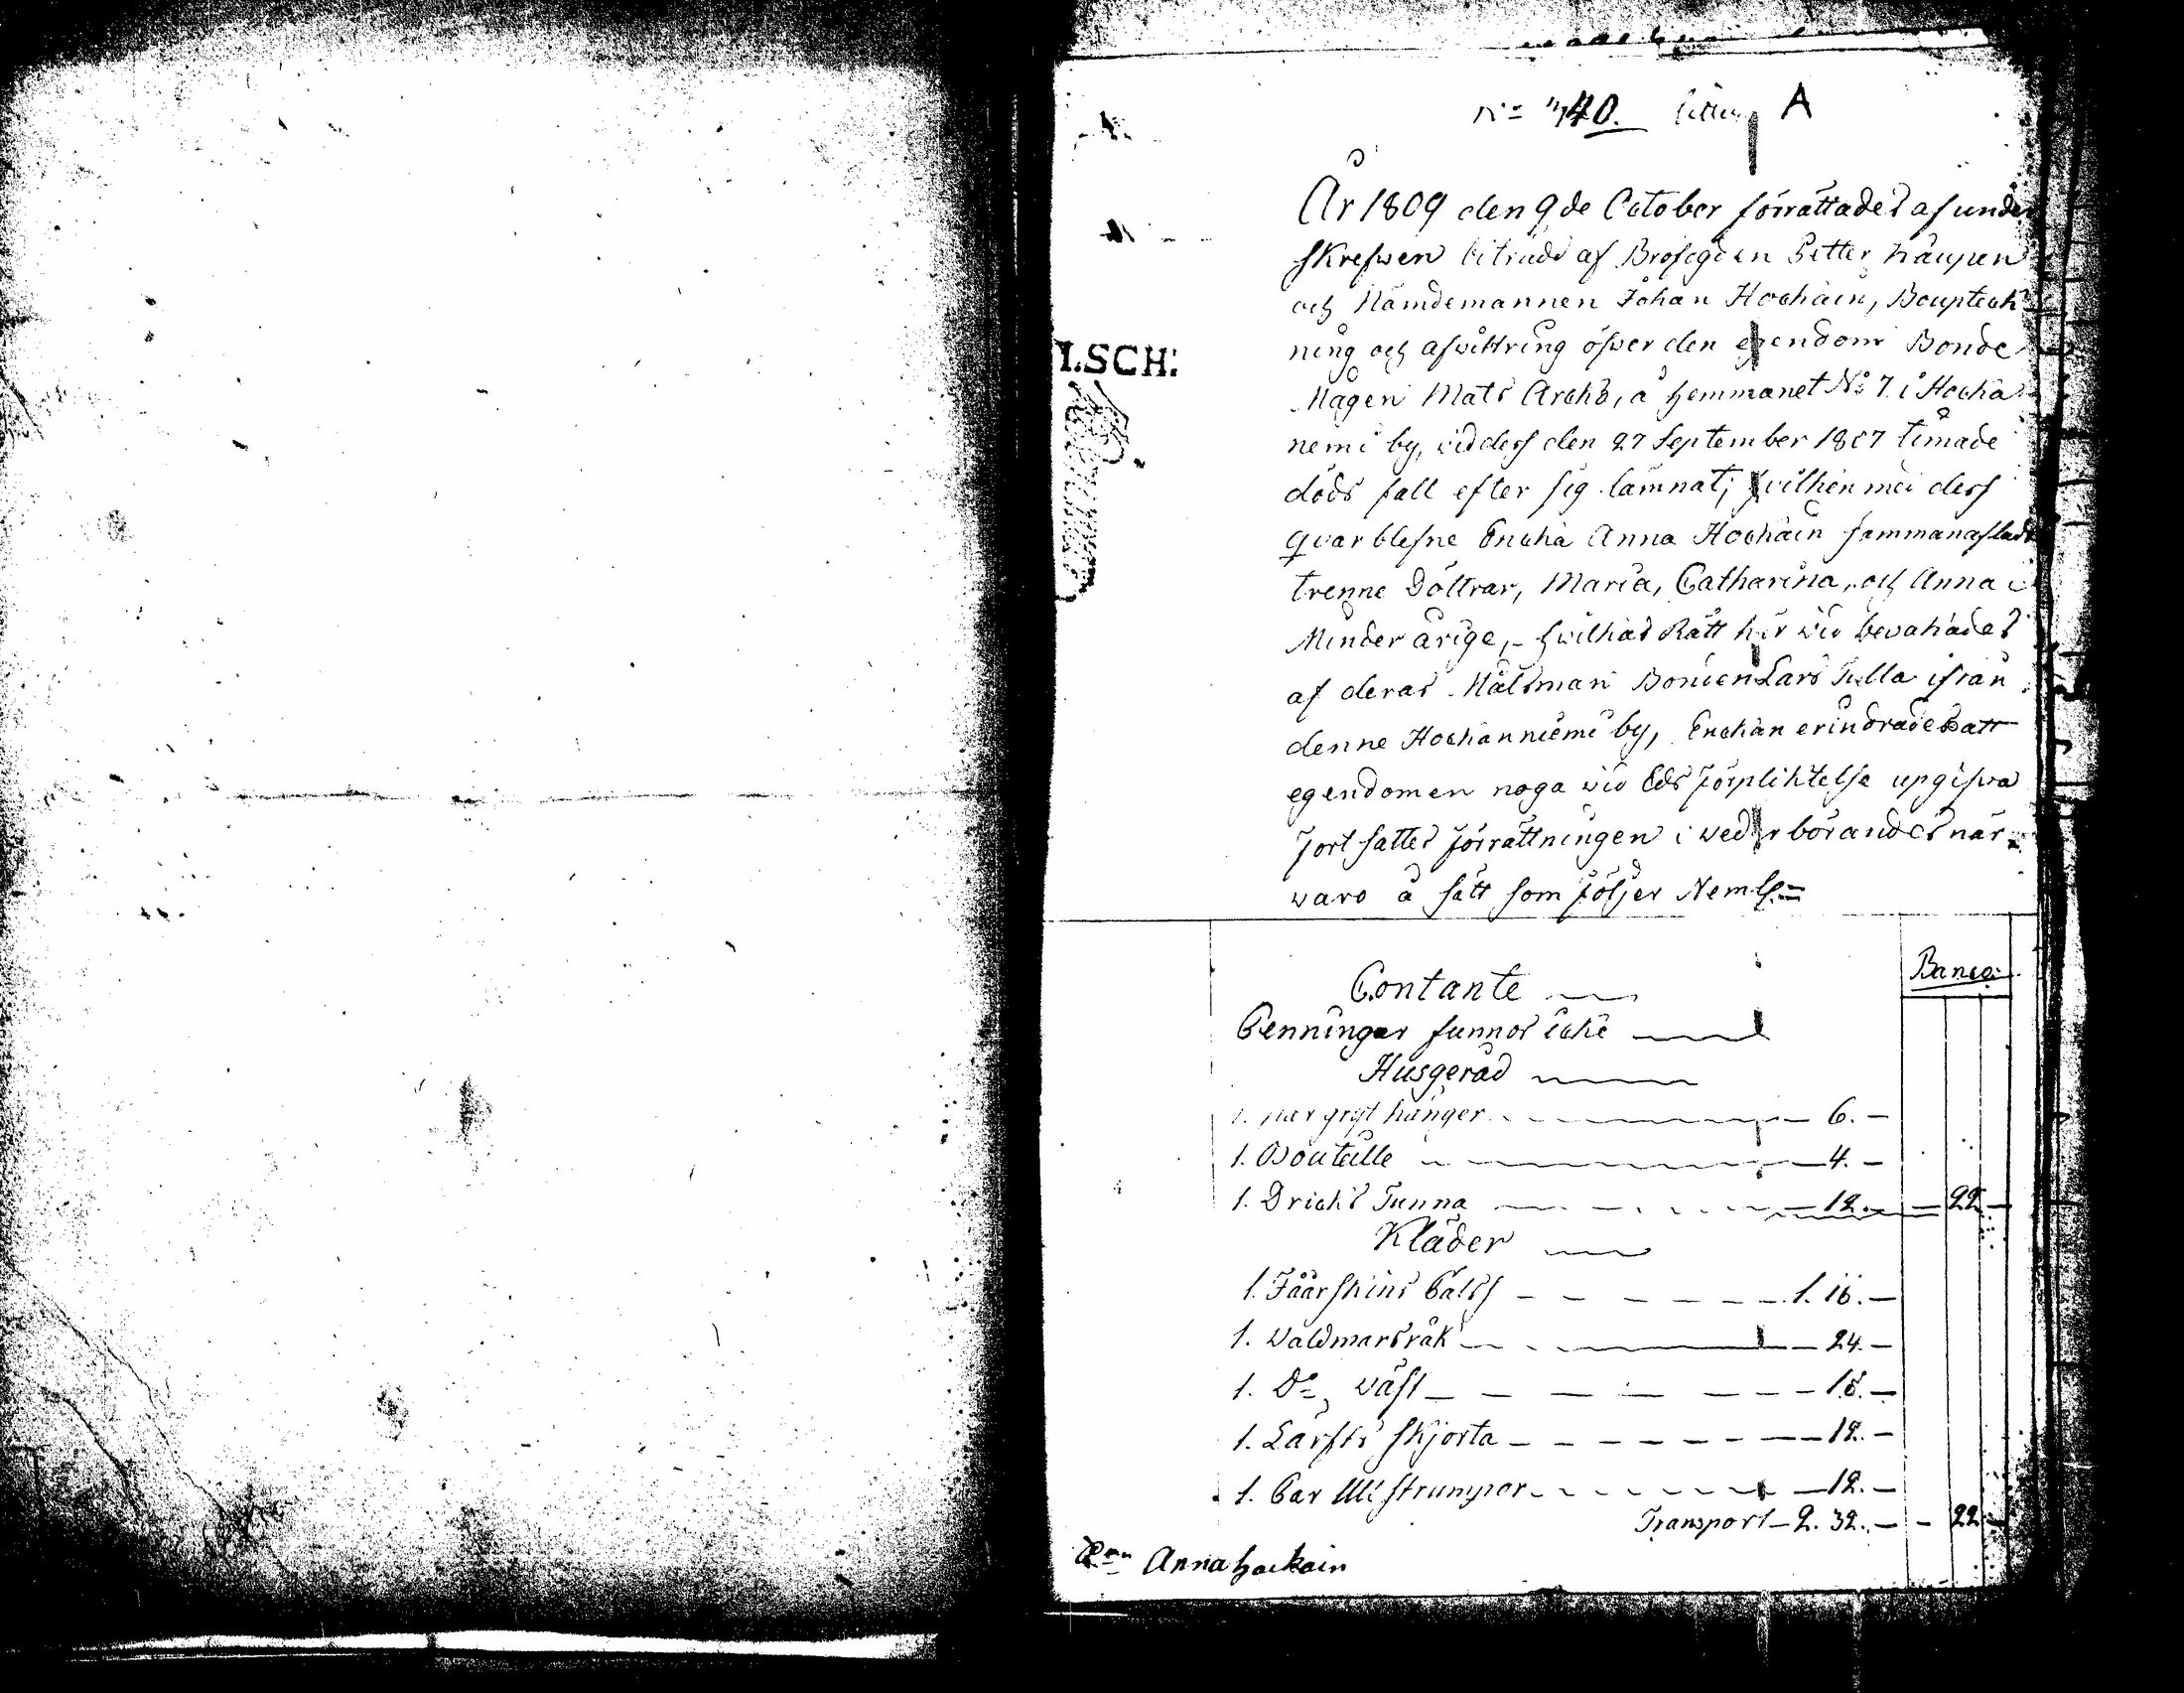 No 740. Littera A
År 1809 den 9de October förrättades af under
skrefwen biträdd af Brofogden Petter
och Nämdemannen Johan Hockain, Boupteck
ning och afwittring öfwer den egendom Bonde
Mågen Mats Archo, å hemmanet No 7 i Hocka
nemi by, vid dess den 27 September 1807 timade
döds fall efter sig lämnat; hvilken med dess
qvarblefne Encka Anna Hockain sammanaflade
trenne Döttrar, Maria, Catharina, och Anna
Minder årige, - hwilkas Rätt här wid bevakades
af deras Målsman Bonden Lars ifrån
denne Hockanniemi by, Enckan erindrades att
egendomen noga wid Eds förplihtelse upgifwa
fort sattes förrättningen i wederbörandes när-
waro å sätt som följer Neml:=
I.SCH:
Banco
Contante
Penningar funnos icke
Husgeråd
1. par gryt hänger 6. -
1. Bouteille 4. -
1. Dricks Tunna 12. - - 22 -
Kläder
1. Fåårskins Päls 1. 16. -
1. Waldmarsråk 24. -
1. Do wäst 16. -
1. Lärfts skjorta 12. -
1. Par Ull strumpor 12. -
Transport - 2. 32. - - 22 -
Anna Hockain